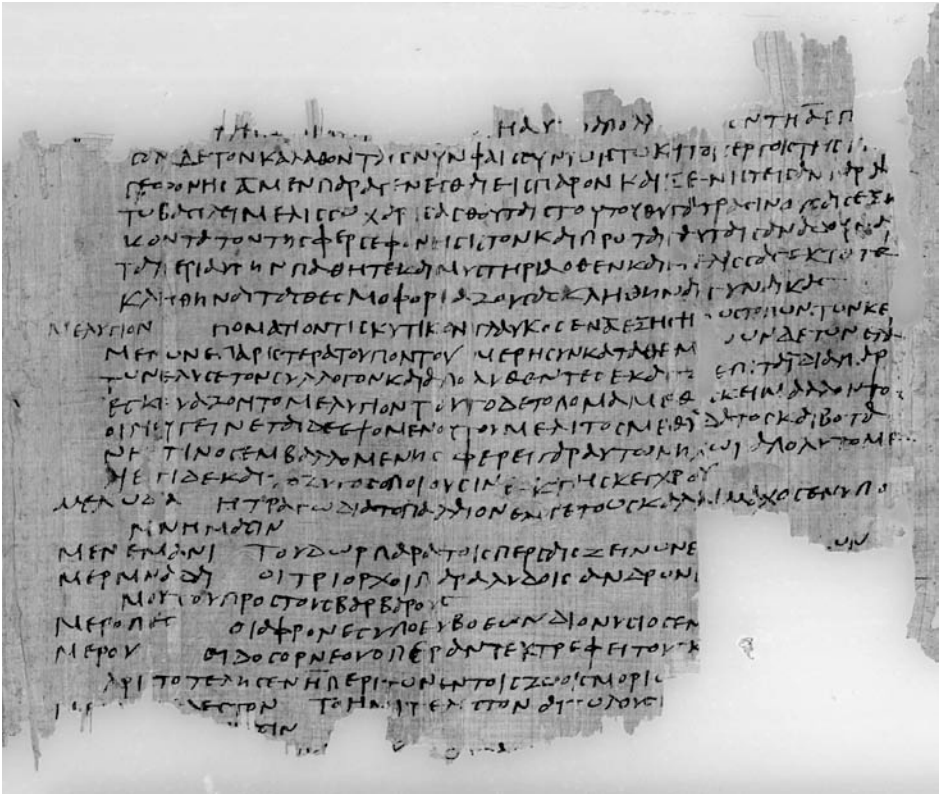 ΗΑΥ ΑΠΟΛΛ ΕΝ ΤΗ Α ΕΠ
ΔΕ ΤΟΝ ΚΑΛΑΘΟΝ ΤΑΙΣ ΝΥΝΦΑΙΣ ΣΥΝ ΤΩ ΙΣΤΩ ΚΑΙ ΤΟΙΣ ΕΡΓΟΙΣ ΤΗΣ Π
ΣΕΦΟΝΗΣ Α ΜΕΝ ΠΑΡΑΓΕΝΕΣΘΑΙ ΕΙΣ ΠΑΡΟΝ ΚΑΙ ΞΕΝΙΣΤΕΙΣΑΝ ΠΑΡΑ
ΤΩ ΒΑΣΙΛΕΙ ΜΕΛΙΣΣΩ ΧΑΡΙΣΑΣΘΑΙ ΤΑΙΣ ΤΟΥΤΟΥ ΘΥΓΑΤΡΑΣΙΝ ΟΥΣΑΙΣ ΕΞΗ
ΚΟΝΤΑ ΤΟΝ ΤΗΣ ΦΕΡΣΕΦΟΝΗΣ ΙΣΤΟΝ ΚΑΙ ΠΡΩΤΑΙΣ ΑΥΤΑΙΣ ΑΝΑΔΟΥΝΑΙ
ΤΑ ΠΕΡΙ ΑΥΤΗΝ ΠΑΘΗ ΤΕ ΚΑΙ ΜΥΣΤΗΡΙΑ ΟΘΕΝ ΚΑΙ ΜΕΛΙΣΣΑΣ ΕΚΤΟΤΕ
ΚΛΗΘΗΝΑΙ ΤΑΣ ΘΕΣΜΟΦΟΡΙΑΖΟΥΣΑΣ ΚΛΗΘΗΝΑΙ ΓΥΝΑΙΚΑΣ
ΜΕΛΥΓΙΟΝ ΠΟΜΑΤΙΟΝ ΤΙ ΣΚΥΤΙΚΟΝ ΓΛΑΥΚΟΣ ΕΝ Α ΕΞΗΓΗ ΤΟΠΩΝ ΤΩΝ ΚΕ
ΜΕΝΩΝ ΕΠ ΑΡΙΣΤΕΡΑ ΤΟΥ ΠΟΝΤΟΥ ΜΕΡΗ ΣΥΝΚΑΤΑΘΕΜ ΩΝ ΔΕ ΤΩΝ ΕΛΑ
ΤΩΝ ΕΛΥΣΕ ΤΟΝ ΣΥΛΛΟΓΟΝ ΚΑΙ ΑΠΟΛΥΘΕΝΤΕΣ ΕΚΑΣ ΕΠΙ ΤΑ ΙΔΙΑ ΠΑΡ
ΕΣΚΕΥΑΖΟΝΤΟ ΜΕΛΥΓΙΟΝ ΤΟΥΤΟ ΔΕ ΤΟ ΠΟΜΑ ΜΕΘ ΣΚΕΙ ΜΑΛΛΟΝ ΤΟΥ
ΟΙΝΟΥ ΓΕΙΝΕΤΑΙ ΔΕ ΕΨΟΜΕΝΟΥ ΤΟΥ ΜΕΛΙΤΟΣ ΜΕΘ ΥΔΑΤΟΣ ΚΑΙ ΒΟΤΑ
ΝΗΣ ΤΙΝΟΣ ΕΜΒΑΛΛΟΜΕΝΗΣ ΦΕΡΕΙ ΓΑΡ ΑΥΤΩΝ Η ΧΩΡΑ ΠΟΛΥ ΤΟ ΜΕ
ΛΙ ΕΤΙ ΔΕ ΚΑΙ ΤΟ ΖΥΤΟΣ Ο ΠΟΙΟΥΣΙΝ ΕΚ ΤΗΣ ΚΕΓΧΡΟΥ
ΜΕΛΩΔΙΑ Η ΤΡΑΓΩΔΙΑ ΤΟ ΠΑΛΑΙΟΝ ΕΛΕΓΕΤΟ ΩΣ ΚΑΛΛΙΜΑΧΟΣ ΕΝ ΥΠΟ
ΜΝΗΜΑΣΙΝ
ΜΕΝΕΜΑΝΙ ΤΟ ΥΔΩΡ ΠΑΡΑ ΤΟΙΣ ΠΕΡΣΑΙΣ ΖΕΙΝΩΝ Ε ΩΝ
ΜΕΡΜΝΑΔΑΙ ΟΙ ΤΡΙΟΡΧΟΙ ΠΑΡΑ ΛΥΔΟΙΣ ΑΝΔΡΩΝ
ΜΟΥ ΤΟΥ ΠΡΟΣ ΤΟΥΣ ΒΑΡΒΑΡΟΥΣ
ΜΕΡΟΠΕΣ ΟΙ ΑΦΡΟΝΕΣ ΥΠΟ ΕΥΒΟΕΩΝ ΔΙΟΝΥΣΙΟΣ ΕΝ
ΜΕΡΟΨ ΕΙΔΟΣ ΟΡΝΕΟΥ ΟΠΕΡ ΑΝΤΕΚΤΡΕΦΕΙ ΤΟΥΣ Κ
ΑΡΙΣΤΟΤΕΛΗΣ ΕΝ Η ΠΕΡΙ ΤΩΝ ΕΝ ΤΟΙΣ ΖΩΟΙΣ ΜΟΡΙΩ
ΛΕΣΤΟΝ ΤΟ ΗΜΙΤΕΛΕΣΤΟΝ ΑΙΤΩΛΟΥΣ
ΣΙΝ